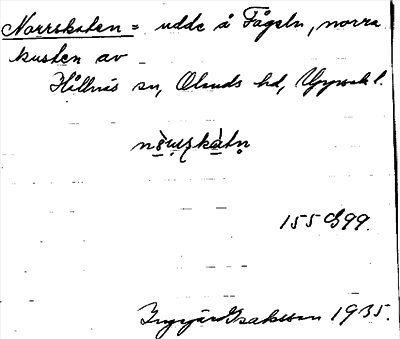 Norrskaten = udde å Fågeln, norra
kusten av
Hållnäs sn, Olands hd, Uppsala l.
155 C 99.
Ingegärd Isaksson 1935.